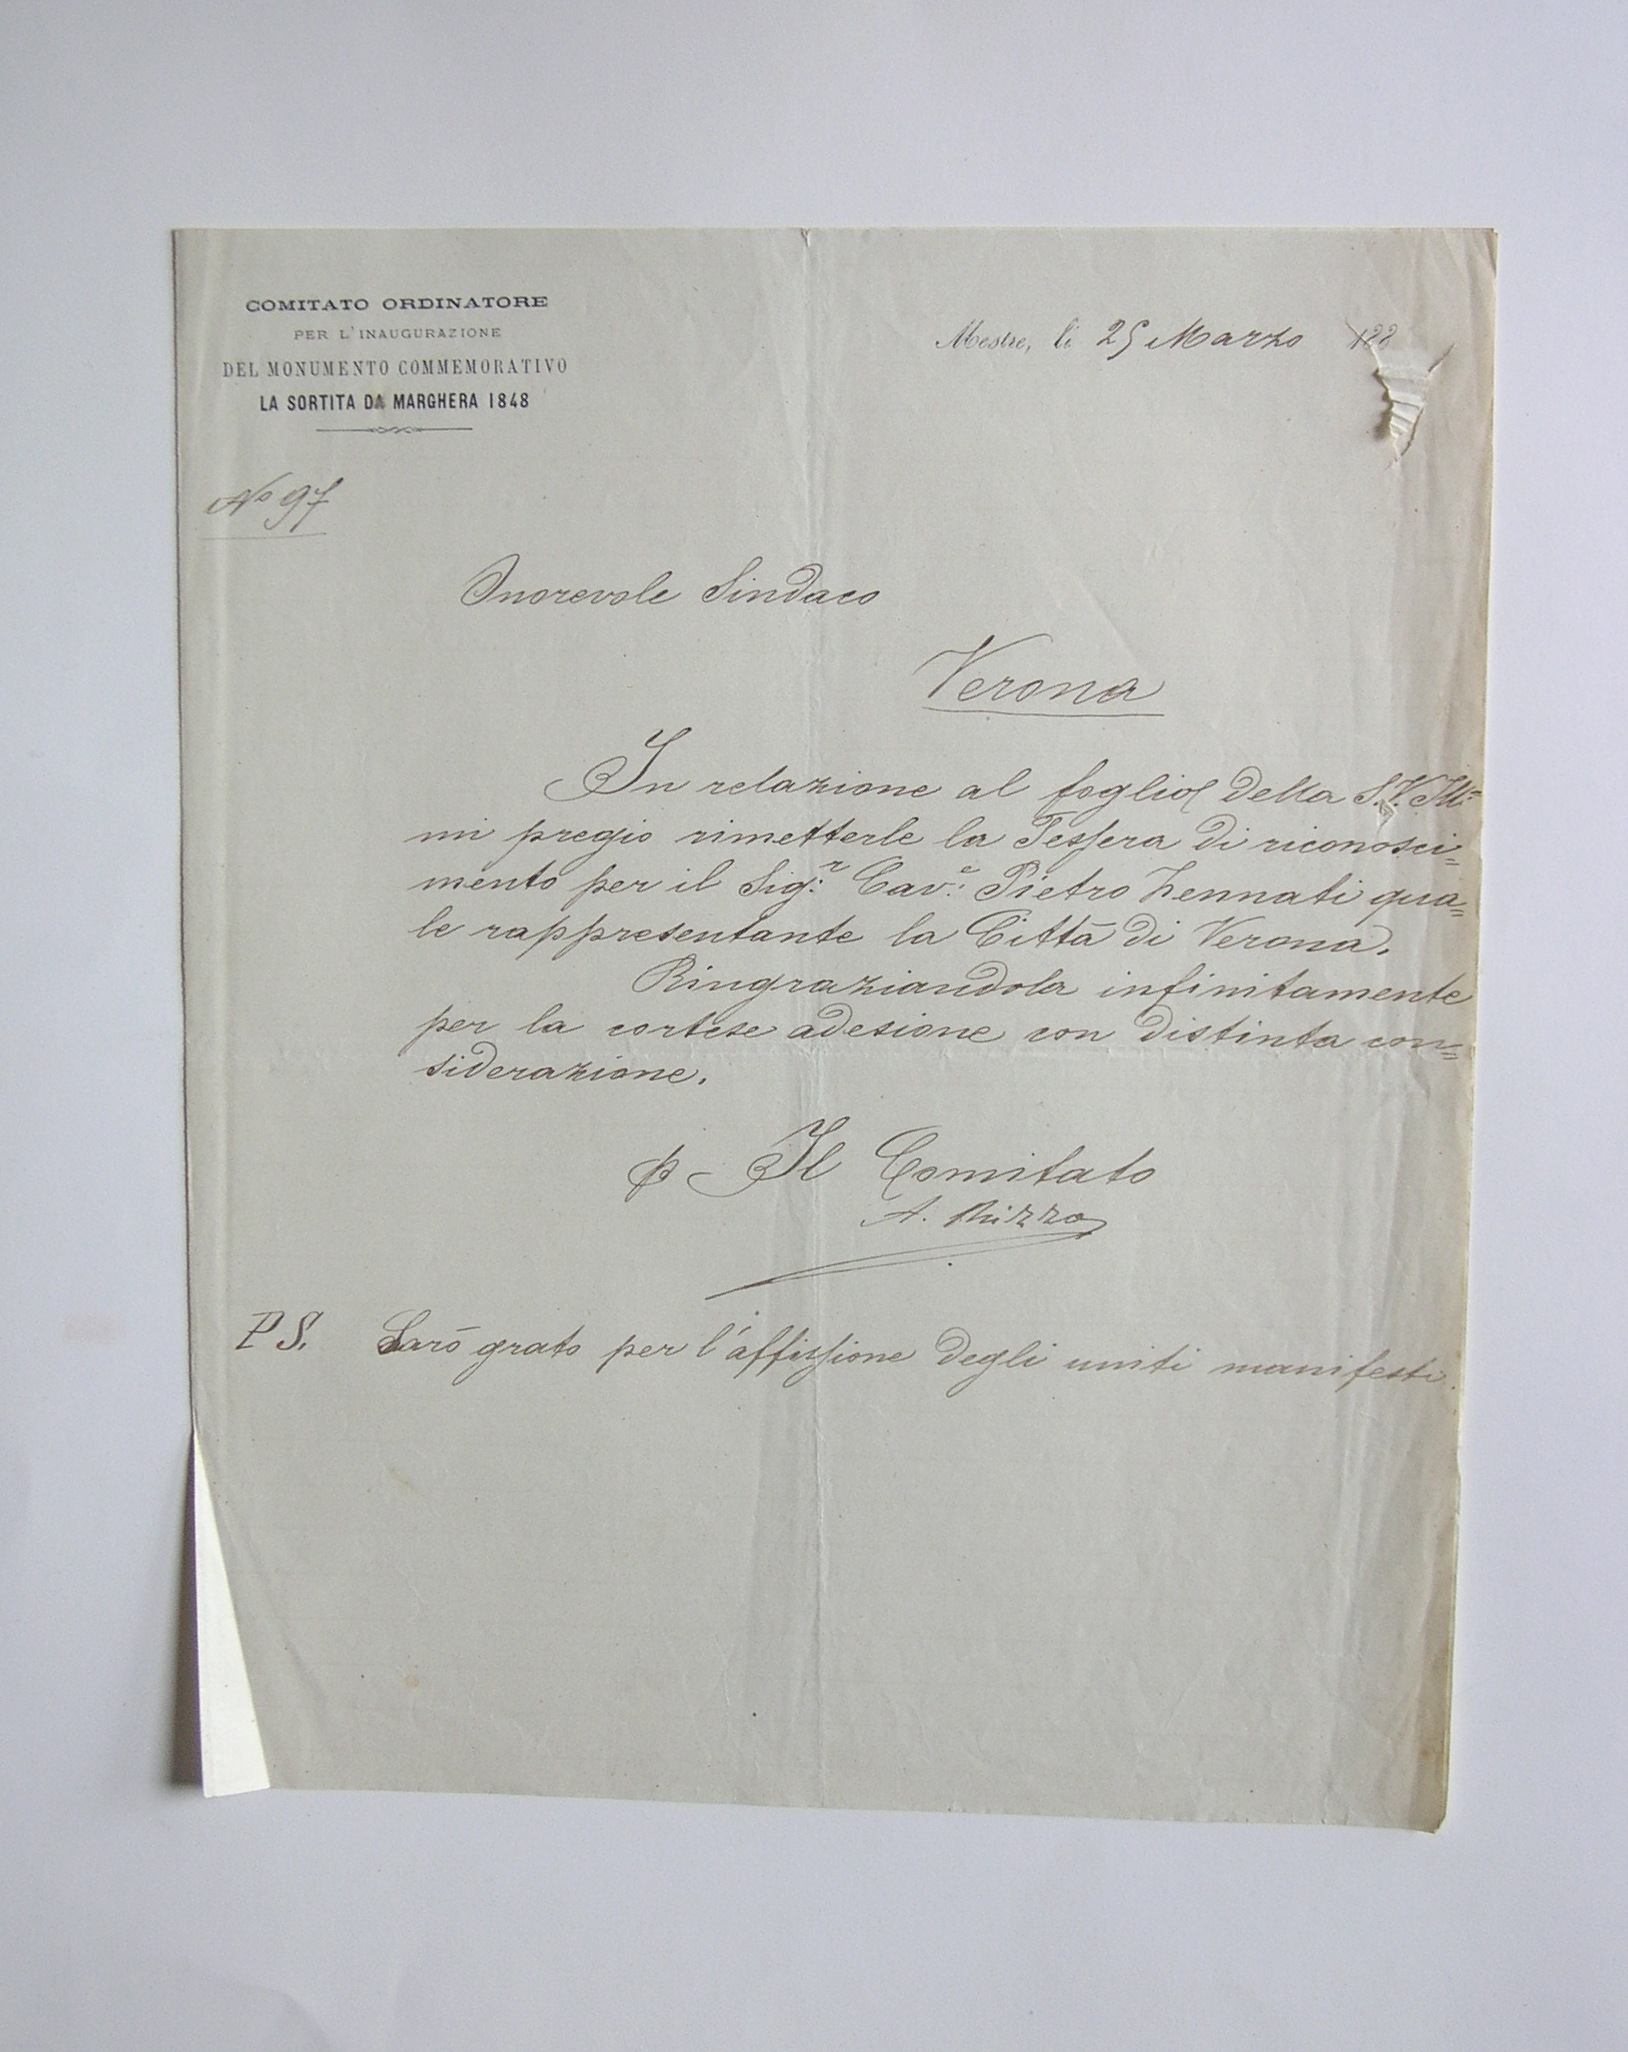 COMITATO ORDINATORE
PER L'INAUGURAZIONE
DEL MONUMENTO COMMEMORATIVO
LA SORTITA DA MARGHERA 1848
Mestre, li 25 Marzo 188
No 97
Onorevole Sindaco
Verona
In relazione al foglio della S.V. Ill.
mi pregio rimetterle la Tessera di riconosci=
mento per il Sig.r Cav.e Pietro Zennati qua=
le rappresentante la Città di Verona.
Ringraziandola infinitamente
per la cortese adesione con distinta con=
siderazione.
p Il Comitato
A. Rizzo
PS. Sarò grato per l'affissione degli uniti manifesti.